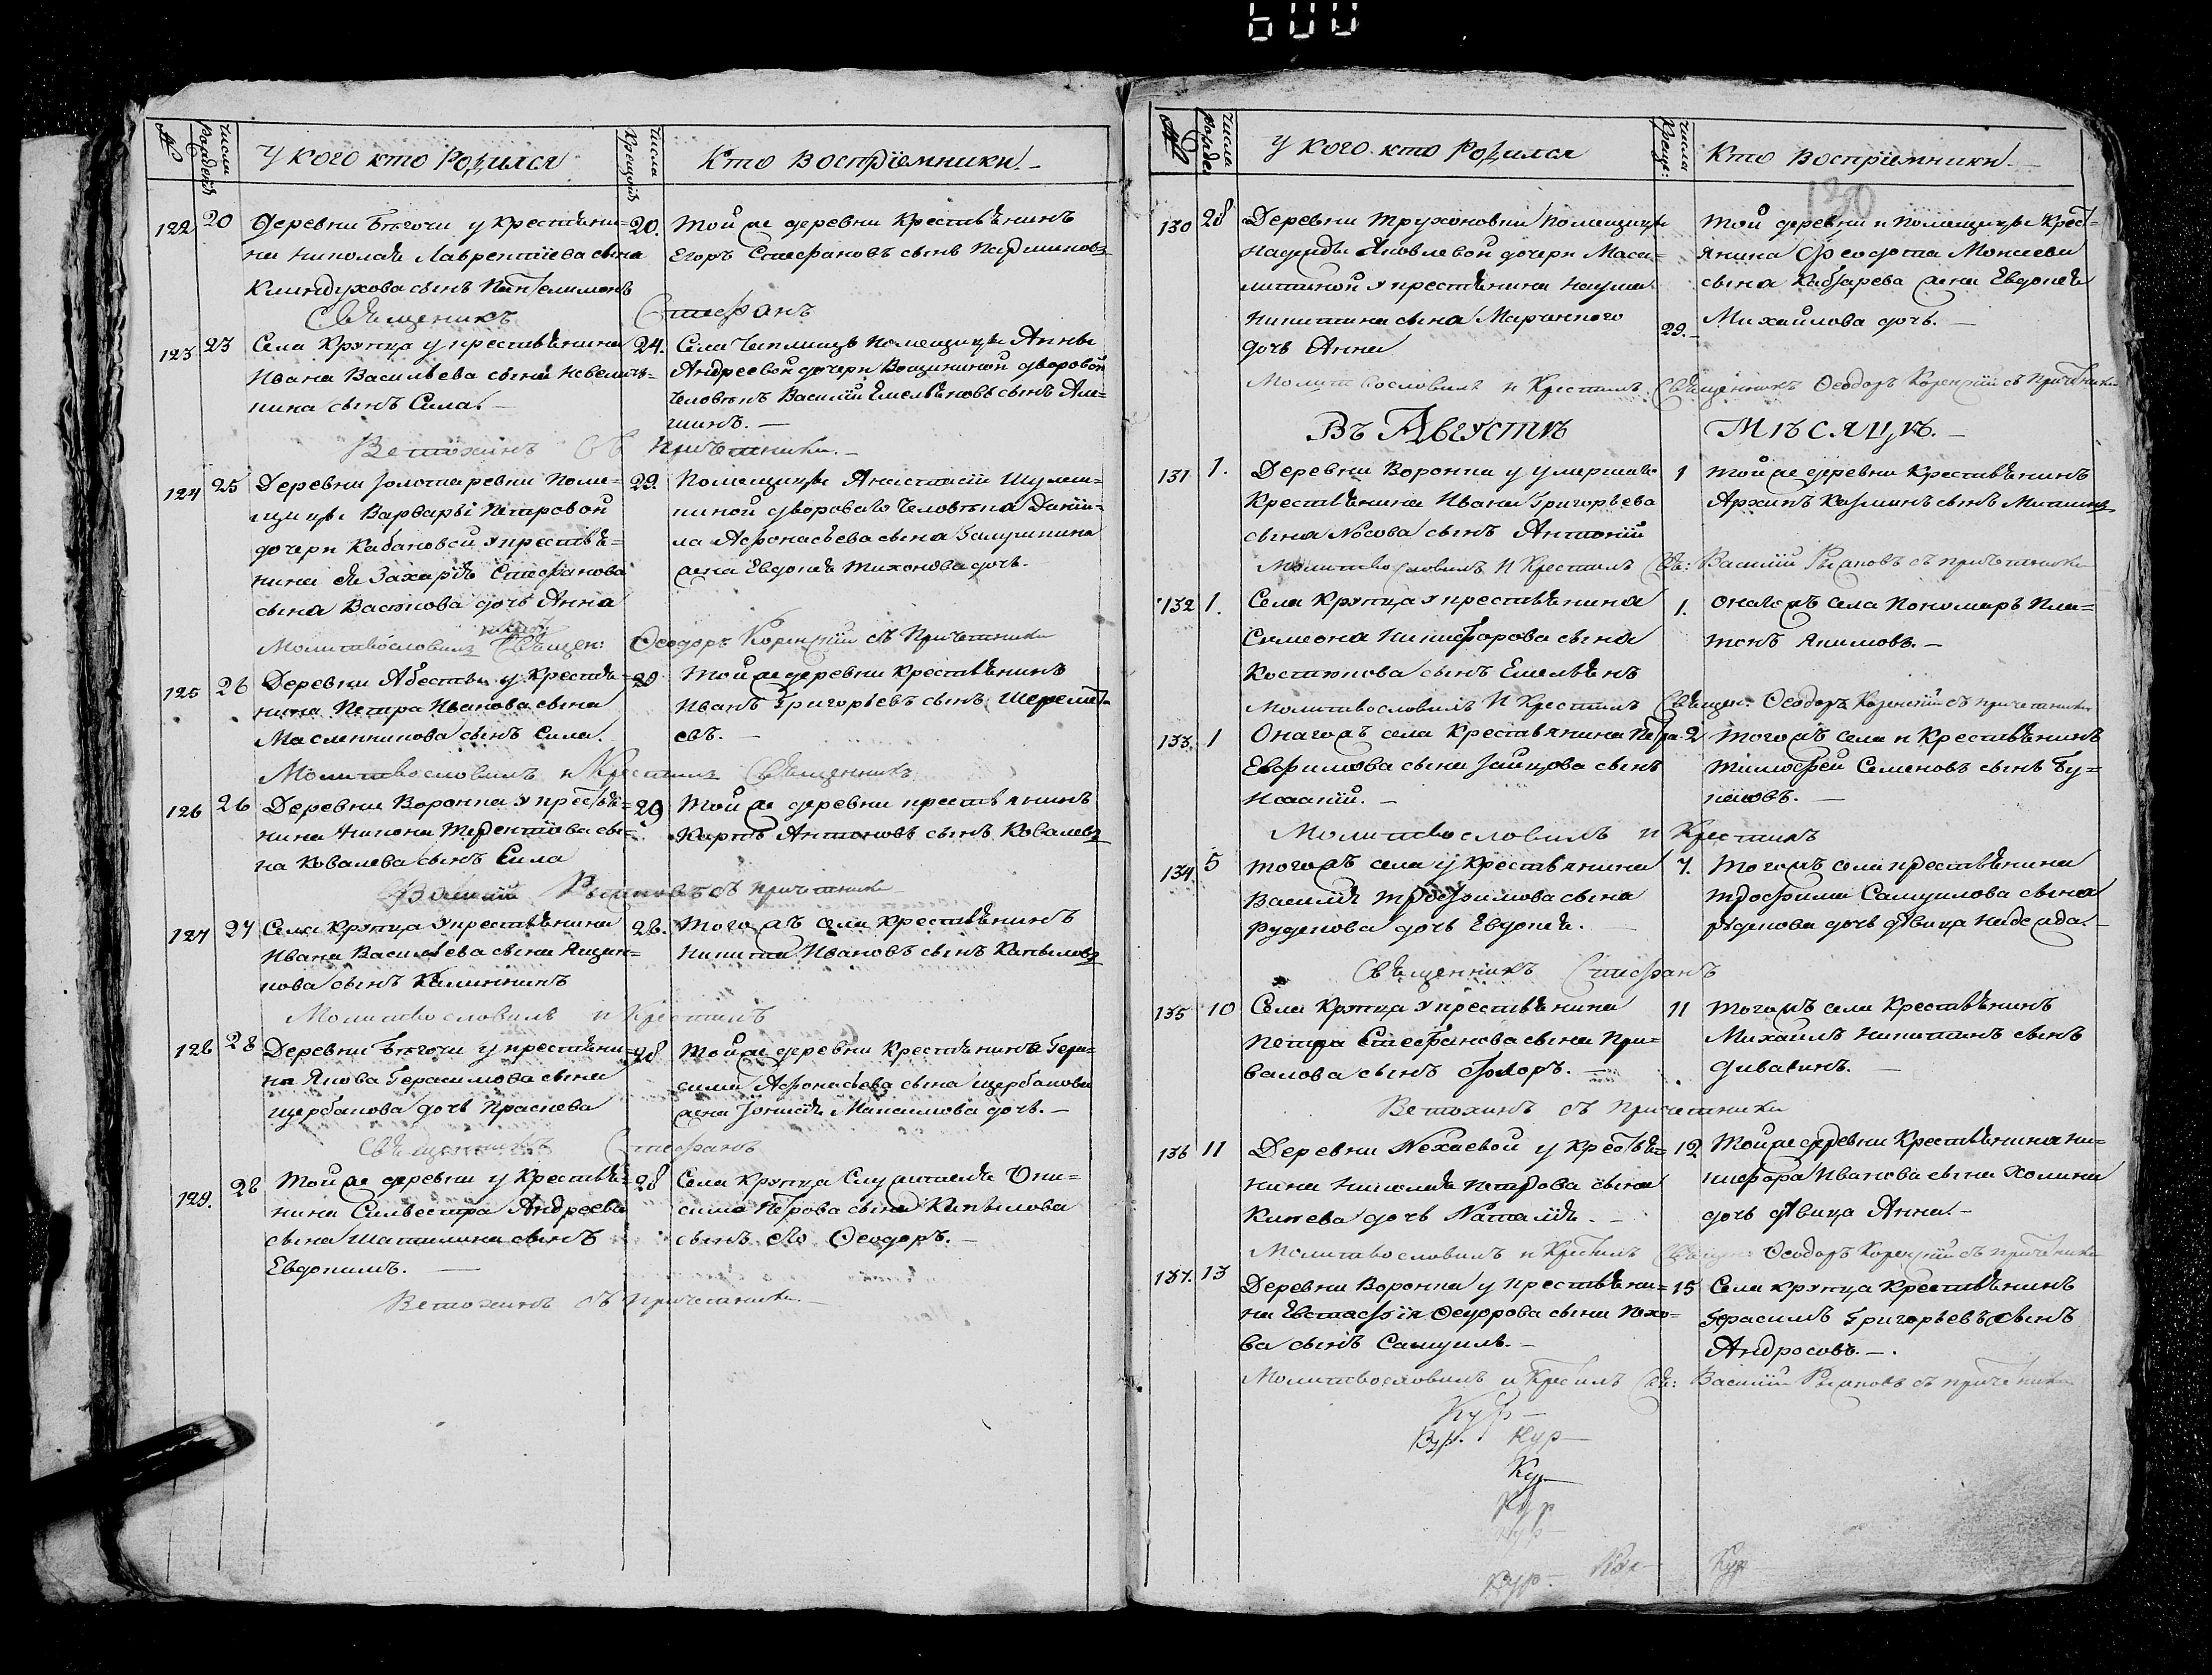 600
№
Числа Рождені
У кого кто Родился
Числа Крещені
Кто Воспріемники.
122 20 Деревни Бѣгочи у Крестьяни=
на Николая Лаврентіева сына
Клиндухова сынъ Пантелимонъ
20. Той же деревни Крестьянинъ
Егоръ Стефановъ сынъ
Священикъ Стефанъ
123 23 Села Крупца у крестьянина
Ивана Васильева сына Невелич=
кина сынъ Сила. —
24. Села помещицы Анны
Андреевой дочери Вощининой дворовой
человѣкъ Василій Емельяновъ сынъ Але=
шинъ. —
Ветохинъ съ причетники. —
124 25 Деревни Золотаревки Поме=
щицы Варвары Петровой
дочери Кабановой у крестья=
нина Захарія Стефанова
сына дочь Анна
29. Помещицы Анастасіи Шулеш=
киной двороваго человѣка Даніи=
ла Афонасьева сына Галушкина
жена Евдокея Тихонова дочь.
Молитвословилъ Священ: Ѳеодоръ Корензкій съ Причетники
125 26 Деревни у Крестья=
нина Петра Иванова сына
Масленникова сынъ Сила.
29 Той же деревни Крестьянинъ
Иванъ Григорьевъ сынъ Шеремет=
евъ. —
Молитвословилъ и Крестилъ Священникъ
126 26 Деревни Воронка у крестья=
нина Терентіева сы=
на Ковалева сынъ Сила
29 Той же деревни крестьянинъ
Карпъ Антоновъ сынъ Ковалевъ
Василій съ причетники
127 27 Села Крупца у крестьянина
Ивана Васильева сына Ящен=
кова сынъ Калинникъ
28. Того жъ села крестьянинъ
Никита Ивановъ сынъ Капыловъ
Молитвословилъ и Крестилъ
128 28 Деревни Бѣгочи у крестьяни=
на Якова Герасимова сына
Щербакова дочь Праскева
28 Той же деревни Крестьянина Гера=
сима Афонасьева сына Щербакова
жена Максимова дочь. —
Священникъ Стефанъ
129. 28 Той же деревни у Крестья=
нина Силвестра Андреева
сына Шаталина сынъ
Евдокимъ. —
28 Села Крупца Они=
сима Петрова сына Капылова
сынъ его Ѳеодоръ. —
Ветохинъ съ причетники. —
№
Числа Рожде
У кого кто Родился
Числа Креще:
Кто Воспріемники. —
130
130 28 Деревни Трухоновки Помещицы
Надежды Яковлевой дочери
у крестьянина Наума
Никитина сына Марченкого
дочь Анна
29. Той деревни и Помещицы Крес=
янина Феодота Моисеева
сына жена Евдокея
Михайлова дочь. —
Молитвословилъ и Крестилъ Священникъ Ѳеодоръ Корензкій съ причетники
Въ Августѣ Мѣсяцѣ. —
131 1. Деревни Воронка у умершаго
Крестьянина Ивана Григорьева
сына Носова сынъ Антоній
1 Той же деревни Крестьянинъ
Архипъ Казминъ сынъ
Молитвословилъ и Крестилъ Свя: Василій съ причетники
132 1. Села Крупца у крестьянина
Симеона Никифорова сына
Костюкова сынъ Емельянъ
1. Онагожъ села Пономарь Пла=
тонъ Акимовъ. —
Молитвословилъ и Крестилъ Священ: Ѳеодоръ Корензкій съ причетники
133. 1 Онагожъ села Крестьянина Петра
Евфимова сына Зайцова сынъ
Исакій. —
2 Тогожъ села и Крестьянинъ
Тимофей Семеновъ сынъ Бу=
—
Молитвословилъ и Крестилъ
134 5 Тогожъ села у крестьянина
Василія Трофимова сына
Рудекова дочь Евдокея. —
7. Тогожъ села крестьянина
Трофима Самуилова сына
Рудекова дочь дѣвица Надежда. —
Священникъ Стефанъ
135 10 Села Крупца у крестьянина
Петра Стефанова сына При=
валова сынъ Флоръ. —
11 Тогожъ села Крестьянинъ
Михаилъ Никитинъ сынъ
—
Ветохинъ съ причетники
136 11 Деревни Нехаевой у крестья=
нина Николая Петрова сына
дочь Наталія. —
12 Той же деревни Крестьянина Ни=
кифора Иванова сына Холина
дочь дѣвица Анна. —
Молитвословилъ и Крестилъ Священ: Ѳеодоръ Корензкій съ причетники
137. 13 Деревни Воронка у крестьяни=
на Евстафія Ѳедорова сына
сынъ Самуилъ. —
15 Села Крупца Крестьянинъ
Герасимъ Григорьевъ сынъ
Андросовъ. —
Молитвословилъ и Крестилъ Свя: Василій съ причетники
Кур —
Кур. Кур —
Кур
Кур
Кур —
Кур — Кур — Кур